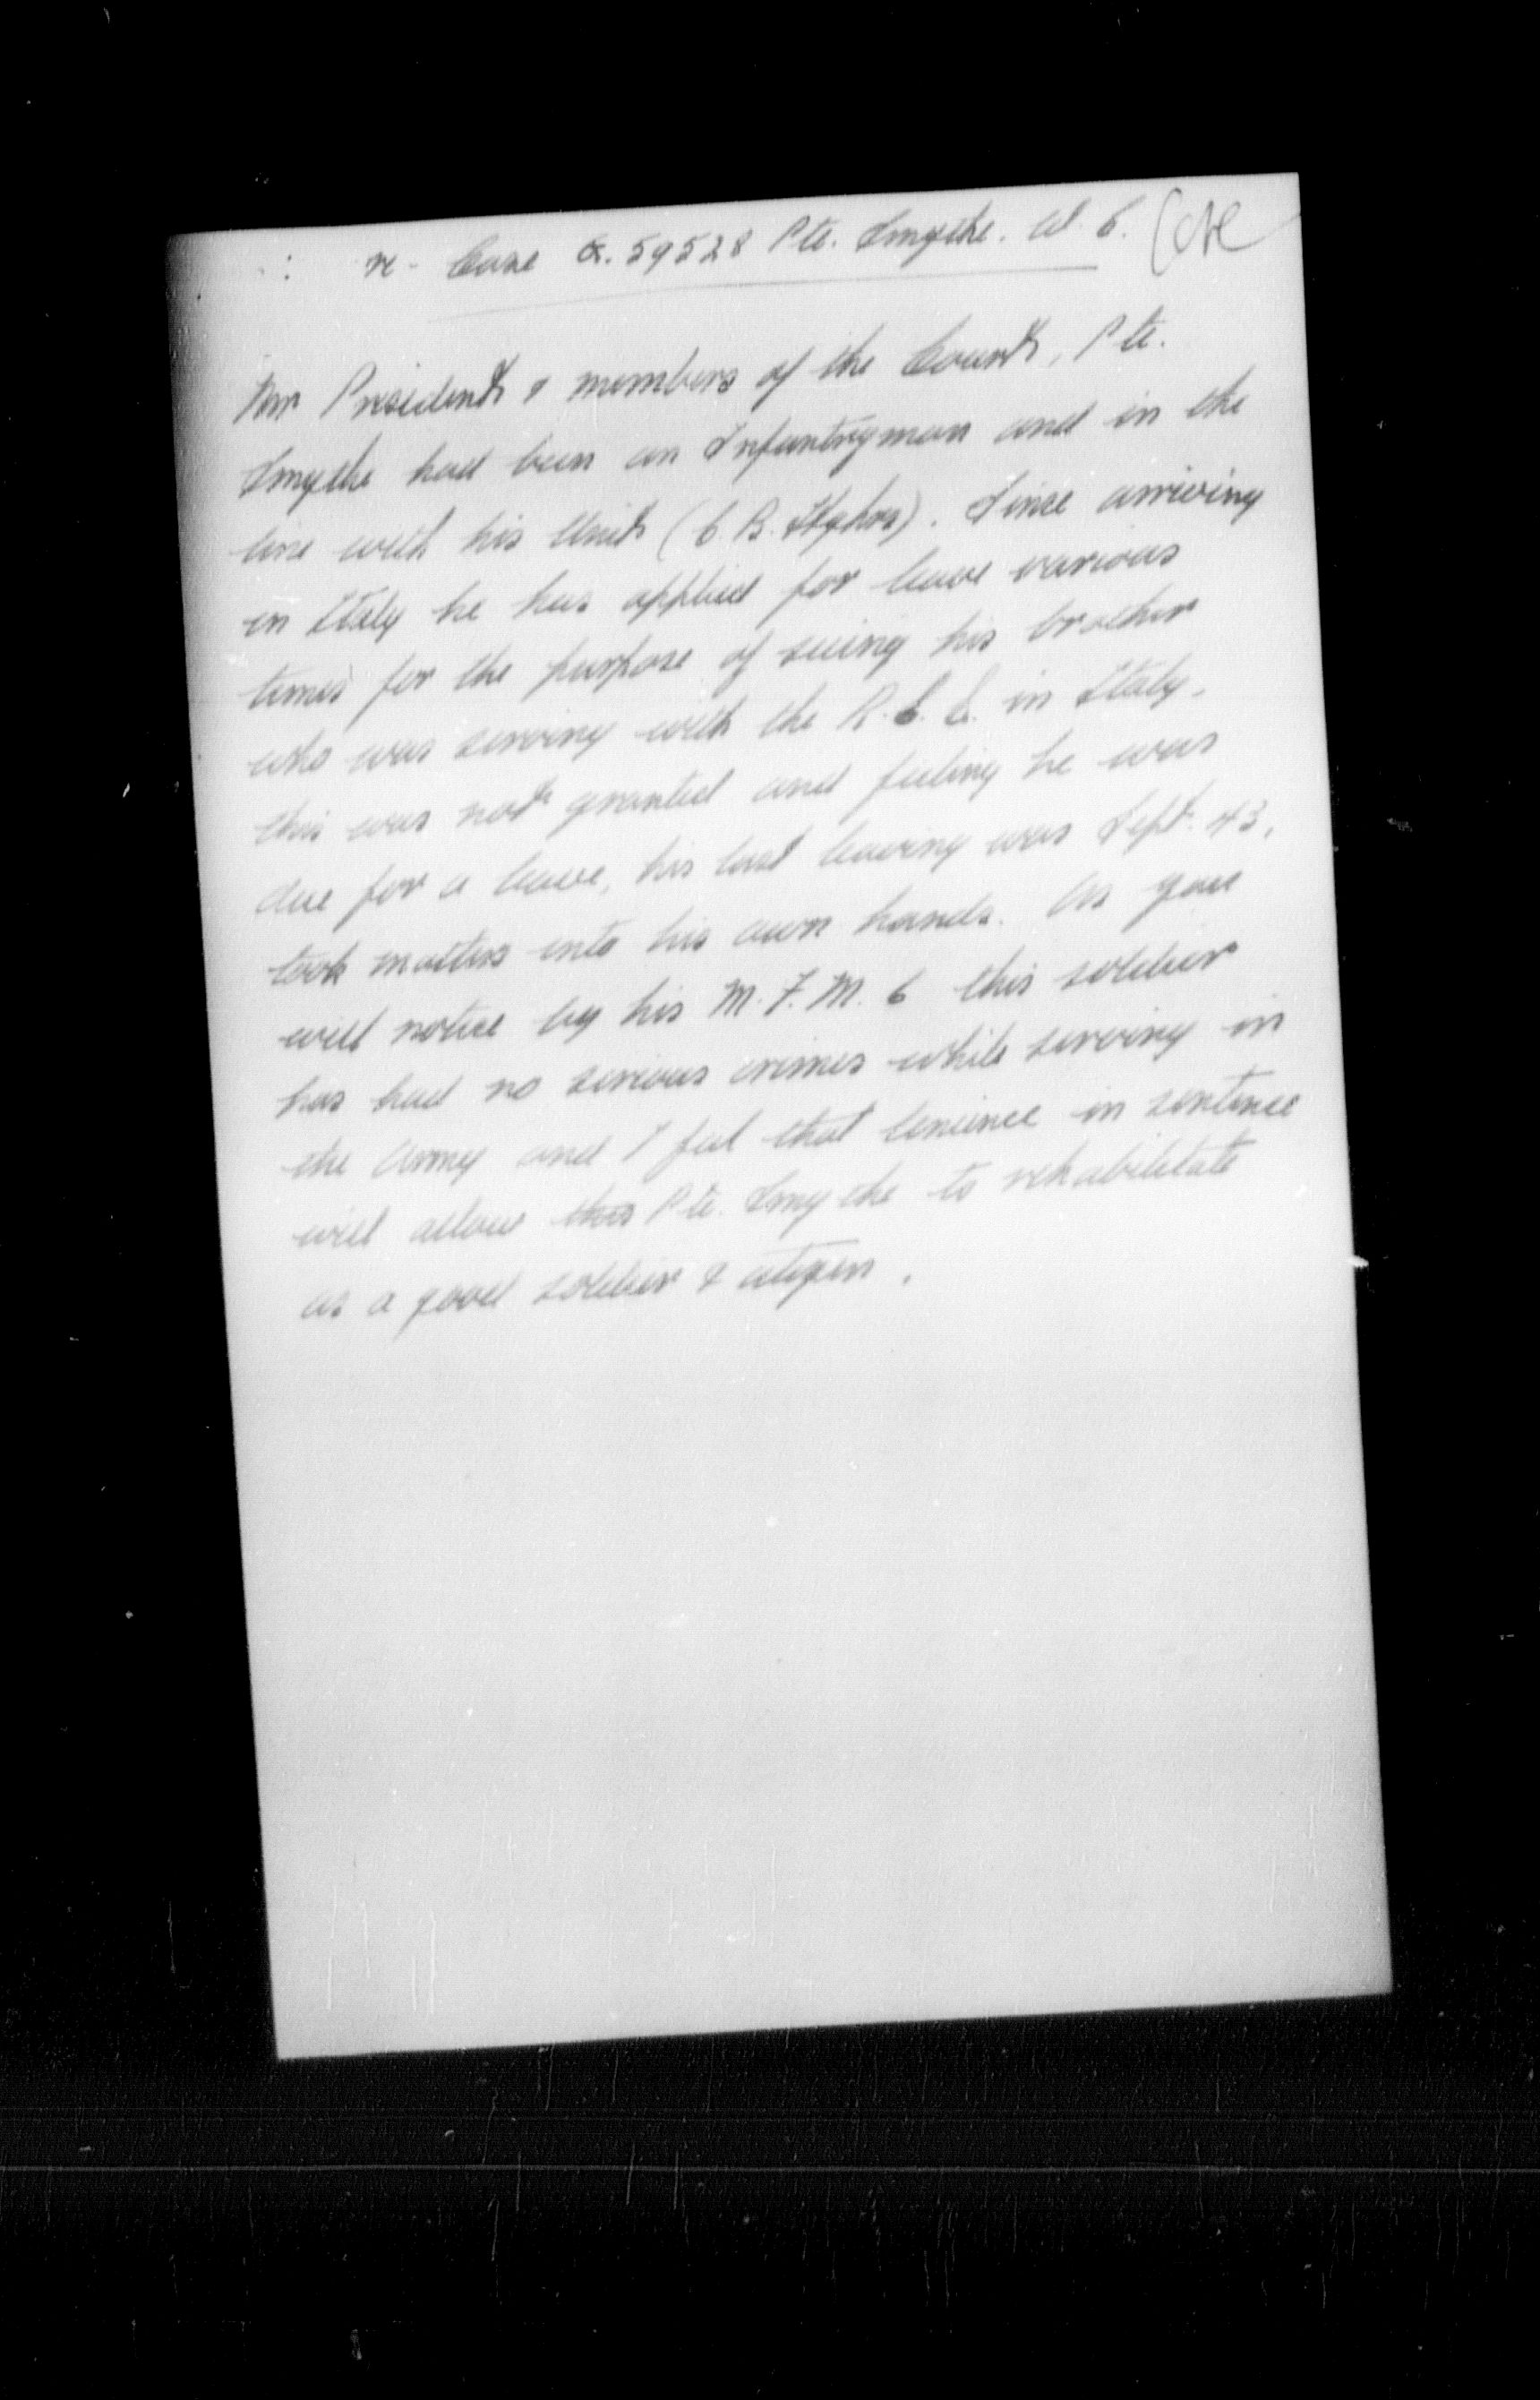 re - Case G. 59528 Pte. Smythe. W. C.
Mr President & members of the Court, Pte.
Smythe had been an Infantryman and in the
line with his Unit (C. B. Hghrs). Since arriving
in Italy he has applied for leave various
times for the purpose of seeing his brother
who was serving with the R. C. E. in Italy.
this was not granted and feeling he was
due for a leave, his last leaving was Sept. 43,
took matters into his own hands. As you
will notice by his M. F. M. 6 this soldier
has had no serious crimes while serving in
the Army and I feel that lenience in sentence
will allow this Pte. Smythe to rehabilitate
as a good soldier & citizen.